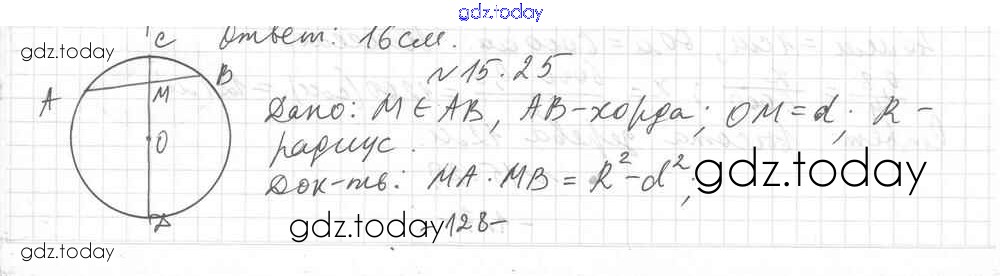 gdz.today
Ответ: 16 см.
gdz.today
C
№15.25
A
B
M
O
D
Дано: M ∈ AB, AB-хорда; OM = d; R -
радиус.
Док-ть: MA · MB = R² - d²;
gdz.today
gdz.today
-128-
gdz.today
gdz.today